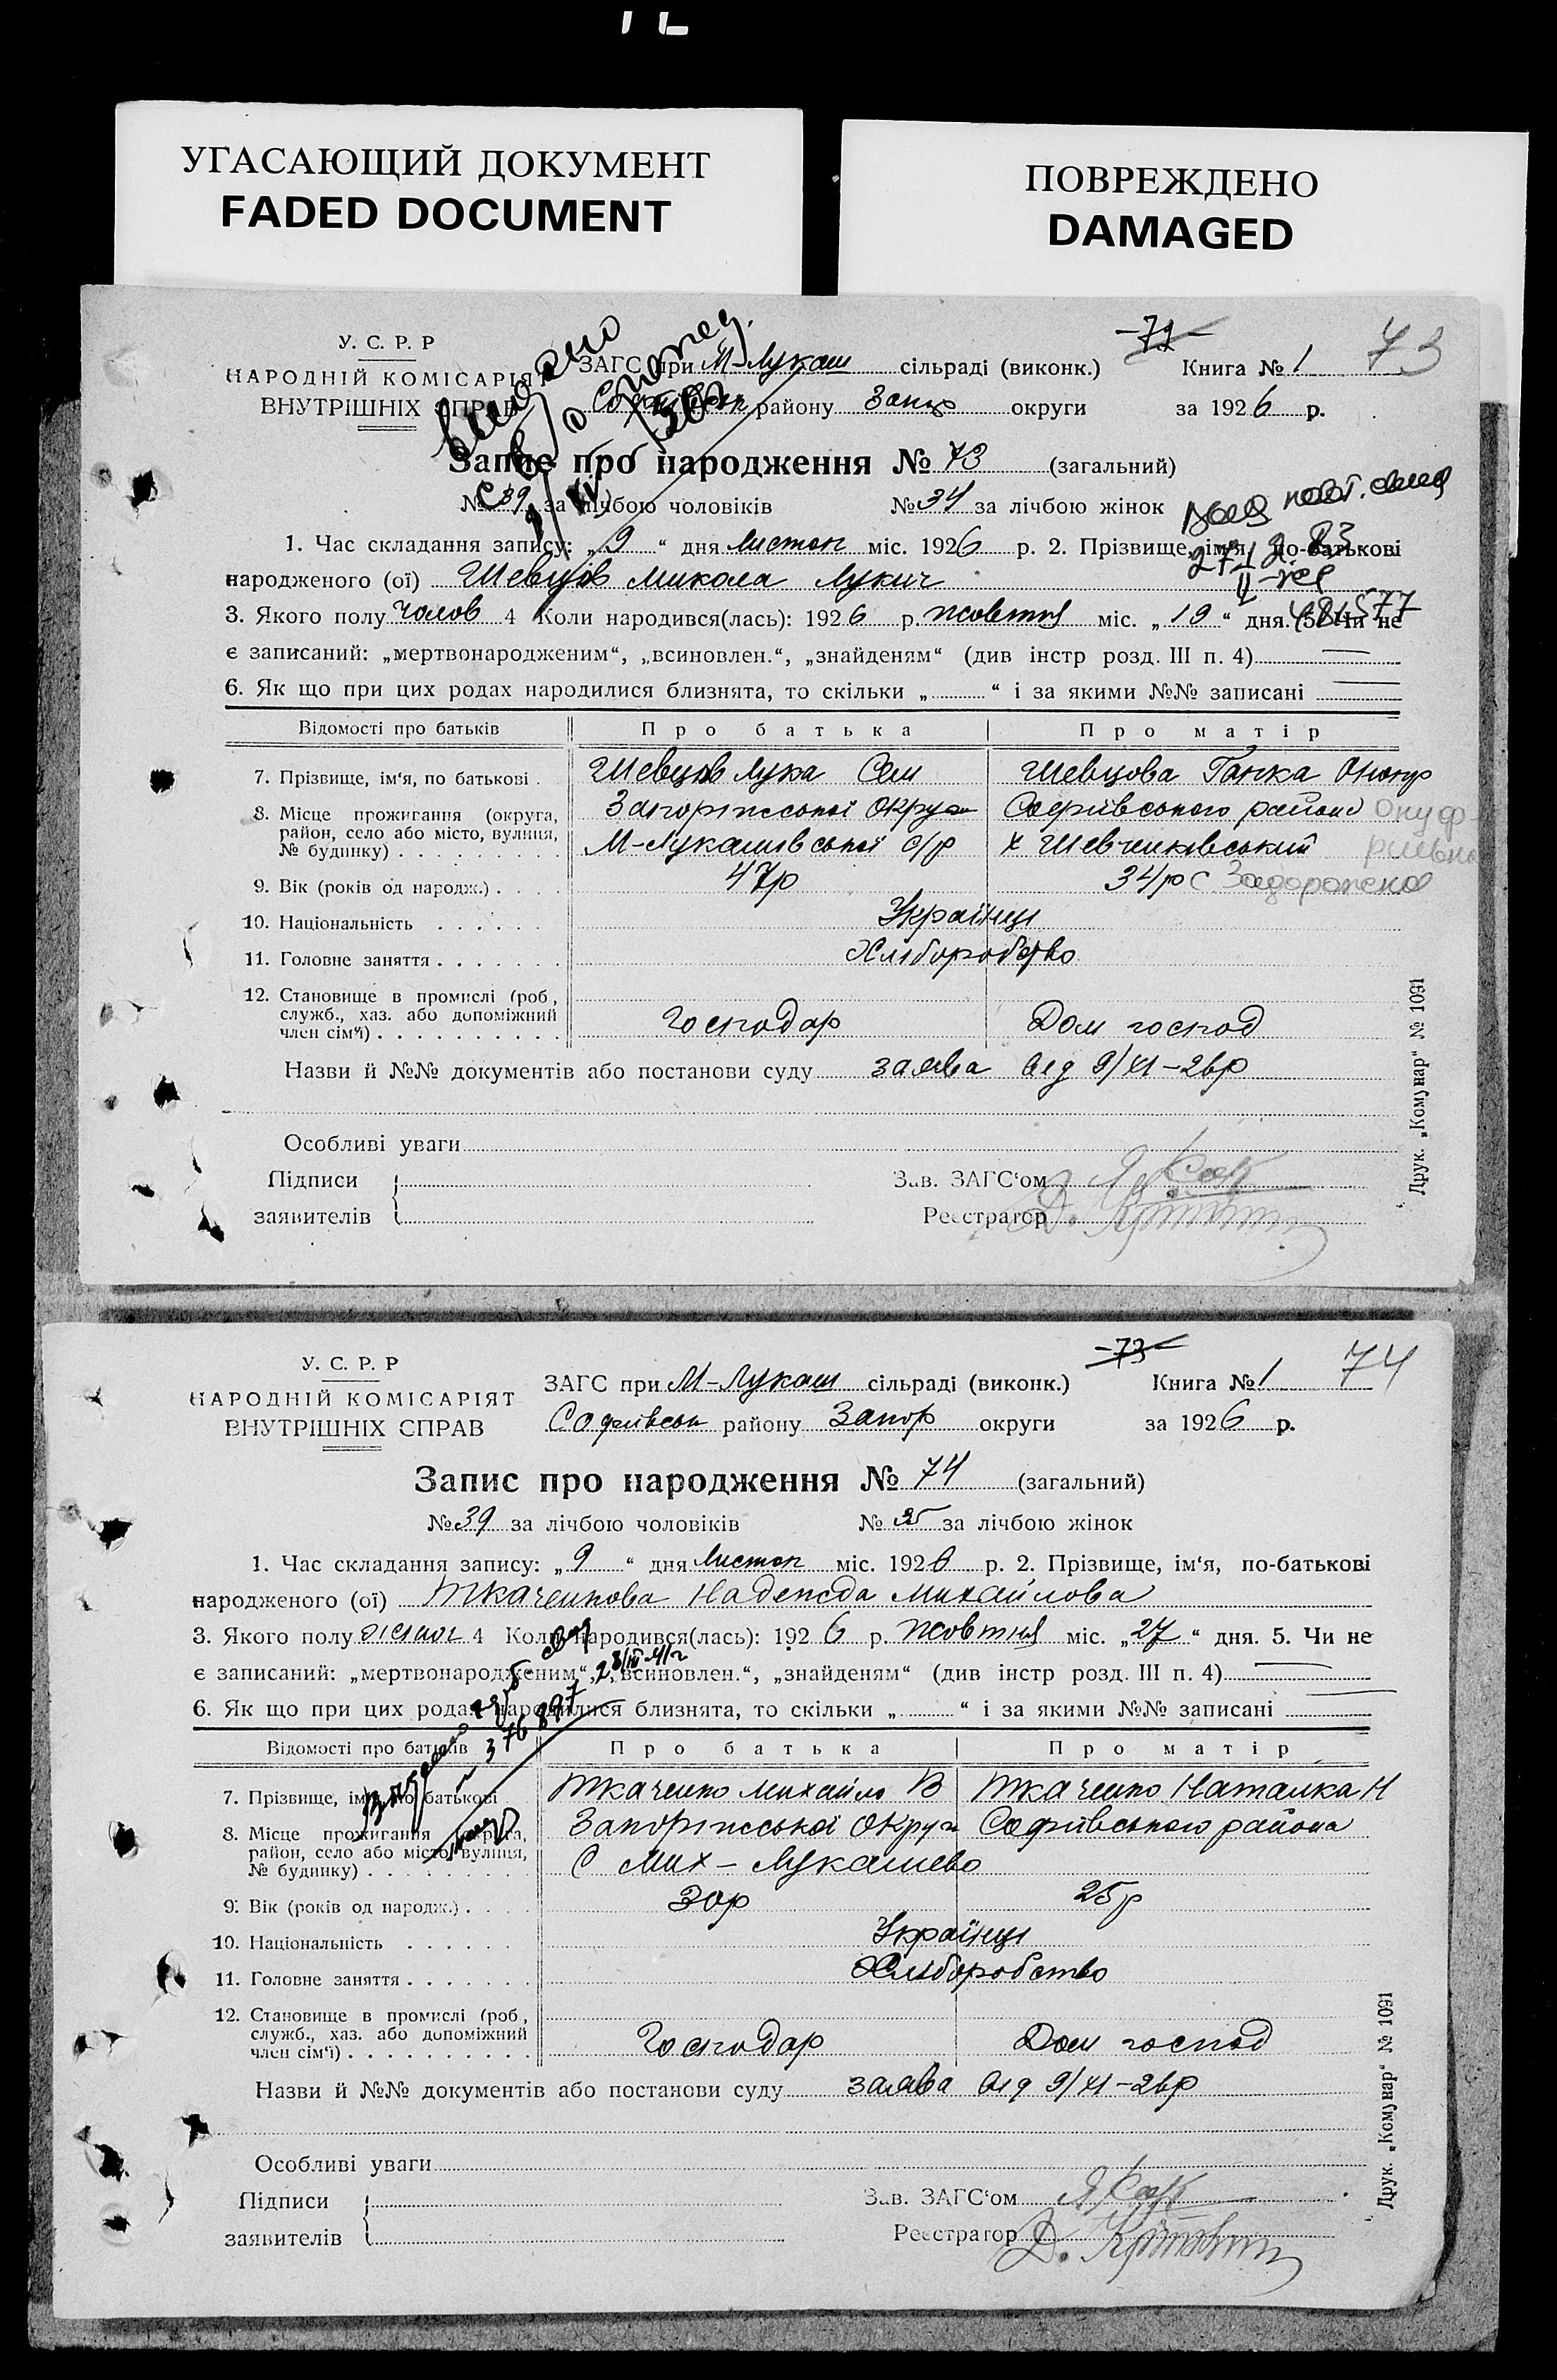 УГАСАЮЩИЙ ДОКУМЕНТ
FADED DOCUMENT
ПОВРЕЖДЕНО
DAMAGED
У. С. Р. Р
НАРОДНІЙ КОМІСАРІЯТ
ВНУТРІШНІХ СПРАВ
-72-
73
ЗАГС при М-Лукаш сільраді (виконк.) Книга № 1
району Запор округи за 1926 р.
Запис про народження № 73 (загальний)
№ 39 за лічбою чоловіків № 34 за лічбою жінок
1. Час складання запису: „9“ дня листоп міс. 1926 р. 2. Прізвище, імя, по-батькові
народженого (ої) Шевцов Микола Лукич
3. Якого полу чолов 4 Коли народився(лась): 1926 р. жовтня міс. „19“ дня. 5. Чи не
є записаний: „мертвонародженим“, „всиновлен.“, „знайденям“ (див інстр розд. III п. 4)
6. Як що при цих родах народилися близнята, то скільки „ “ і за якими №№ записані
Відомості про батьків Про батька Про матір
7. Прізвище, ім‘я, по батькові . Шевцов Лука Сем Шевцова Ганка
8. Місце прожигання (округа, район, село або місто, вулиця, № будинку) Запоріжської округи Софиівського района
М-Лукашівської с/р х Шевченківський
9. Вік (років од народж.) 47р 34р
с Задорожена
10. Національність Українці
11. Головне заняття Хліборобство
12. Становище в промислі (роб, служб., хаз. або допоміжний член сім‘ї) Господар Дом господ
Назви й №№ документів або постанови суду заява від 9/XI-26р
Особливі уваги
Підписи
заявителів
Зав. ЗАГС‘ом
Реєстратор
Друк. „Комунар“ № 1091
У. С. Р. Р
НАРОДНІЙ КОМІСАРІЯТ
ВНУТРІШНІХ СПРАВ
-73-
74
ЗАГС при М-Лукаш сільраді (виконк.) Книга № 1
Софиівськ району Запор округи за 1926 р.
Запис про народження № 74 (загальний)
№ 39 за лічбою чоловіків № 35 за лічбою жінок
1. Час складання запису: „9“ дня листоп міс. 1926 р. 2. Прізвище, ім‘я, по-батькові
народженого (ої) Ткаченкова Надежда Михайлова
3. Якого полу жіноч 4 Коли народився(лась): 1926 р. жовтня міс. „27“ дня. 5. Чи не
є записаний: „мертвонародженим“, „всиновлен.“, „знайденям“ (див інстр розд. III п. 4)
6. Як що при цих родах народилися близнята, то скільки „ “ і за якими №№ записані
Відомості про батьків Про батька Про матір
7. Прізвище, ім‘я, по батькові Ткаченко Михайло В Ткаченко Наталка Н
8. Місце прожигання (округа, район, село або місто, вулиця, № будинку) Запоріжської округи Софиівського района
С Мих-Лукашево
9. Вік (років од народж.) 30р 25р
10. Національність Українці
11. Головне заняття Хліборобство
12. Становище в промислі (роб, служб., хаз. або допоміжний член сім‘ї) Господар Дом господ
Назви й №№ документів або постанови суду заява від 9/XI-26р
Особливі уваги
Підписи
заявителів
Зав. ЗАГС‘ом
Реєстратор
Друк. „Комунар“ № 1091